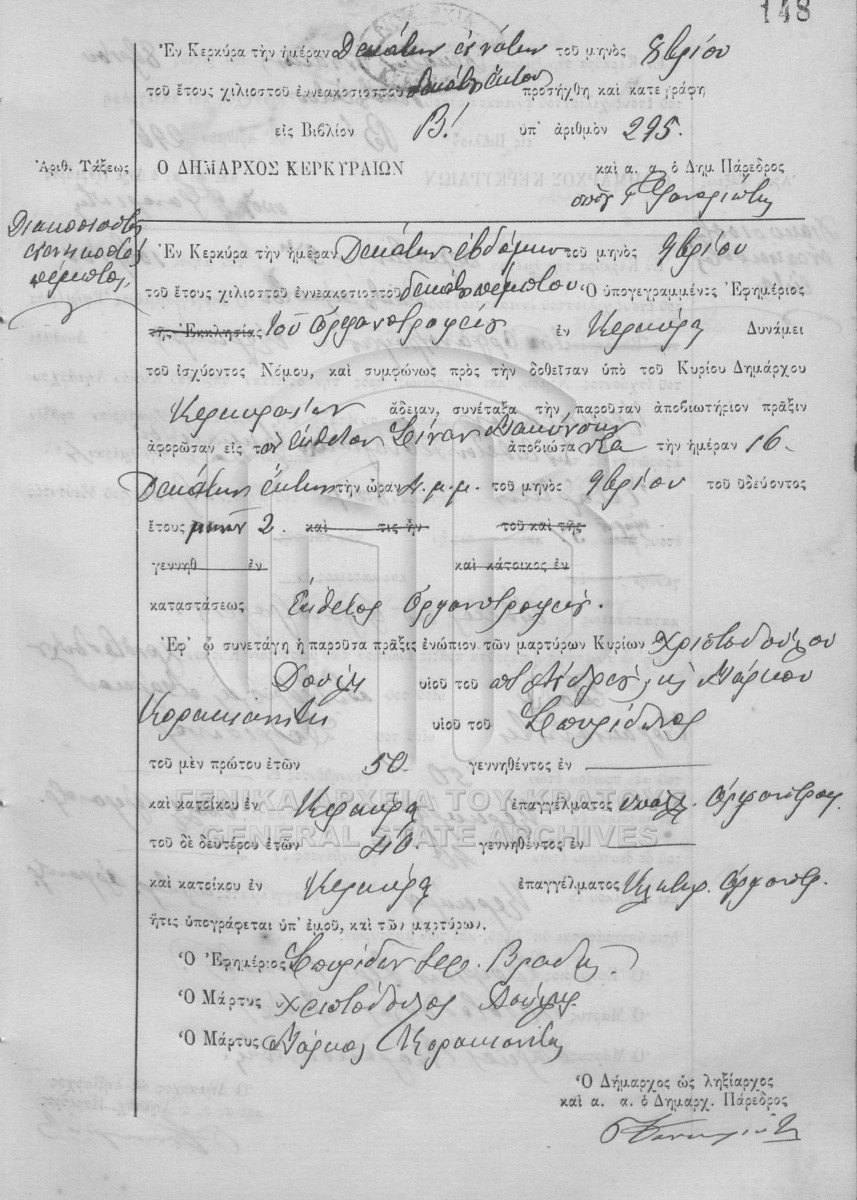 148
Ἐν Κερκύρᾳ τὴν ἡμέραν Δεκάτην ἐννάτην τοῦ μηνὸς 9βρίου
τοῦ ἔτους χιλιοστοῦ ἐννεακοσιοστοῦ προσήχθη καὶ κατεγράφη
εἰς Βιβλίον Β! ὑπ' ἀριθμὸν 295.
Ἀριθ. Τάξεως Ὁ ΔΗΜΑΡΧΟΣ ΚΕΡΚΥΡΑΙΩΝ καὶ α. α. ὁ Δημ. Πάρεδρος
Διακοσιοστὸς
ἐνενηκοστὸς
πέμπτος.
Ἐν Κερκύρᾳ τὴν ἡμέραν Δεκάτην ἑβδόμην τοῦ μηνὸς 9βρίου
τοῦ ἔτους χιλιοστοῦ ἐννεακοσιοστοῦ δεκάτου πέμπτου Ὁ ὑπογεγραμμένος Ἐφημέριος
τῆς Ἐκκλησίας τοῦ Ὀρφανοτροφείου ἐν Κερκύρᾳ Δυνάμει
τοῦ ἰσχύοντος Νόμου, καὶ συμφώνως πρὸς τὴν δοθεῖσαν ὑπὸ τοῦ Κυρίου Δημάρχου
Κερκυραίων ἄδειαν, συνέταξα τὴν παροῦσαν ἀποβιωτήριον πρᾶξιν
ἀφορῶσαν εἰς τὸν ἔκθετον ἀποβιώσαντα τὴν ἡμέραν 16
Δεκάτην ἕκτην τὴν ὥραν μ.μ. τοῦ μηνὸς 9βρίου τοῦ ὁδεύοντος
ἔτους μηνῶν 2. καὶ τις ἦν τοῦ καὶ τῆς
γεννηθ ἐν καὶ κάτοικος ἐν
καταστάσεως Ἔκθετος Ὀρφανοτροφείου.
Ἐφ' ᾧ συνετάγη ἡ παροῦσα πρᾶξις ἐνώπιον τῶν μαρτύρων Κυρίων Χριστοδούλου
Δούλη υἱοῦ τοῦ ποτ Ἀνδρέου, καὶ Μάρκου
Κορακιανίτη υἱοῦ τοῦ Σπυρίδωνος
τοῦ μὲν πρώτου ἐτῶν 50 γεννηθέντος ἐν
καὶ κατοίκου ἐν Κερκύρᾳ ἐπαγγέλματος ὑπαλ. Ὀρφανοτροφ.
τοῦ δὲ δευτέρου ἐτῶν 40. γεννηθέντος ἐν
καὶ κατοίκου ἐν Κερκύρᾳ ἐπαγγέλματος Κλητήρ. Ὀρφανοτρ.
ἥτις ὑπογράφεται ὑπ' ἐμοῦ, καὶ τῶν μαρτύρων.
Ὁ Ἐφημέριος Σπυρίδων Ιερ.
Ὁ Μάρτυς Χριστόδουλος Δούλης
Ὁ Μάρτυς Μάρκος Κορακιανίτης
Ὁ Δήμαρχος ὡς ληξίαρχος
καὶ α. α. ὁ Δημαρχ. Πάρεδρος
ΓΕΝΙΚΑ ΑΡΧΕΙΑ ΤΟΥ ΚΡΑΤΟΥΣ
GENERAL STATE ARCHIVES